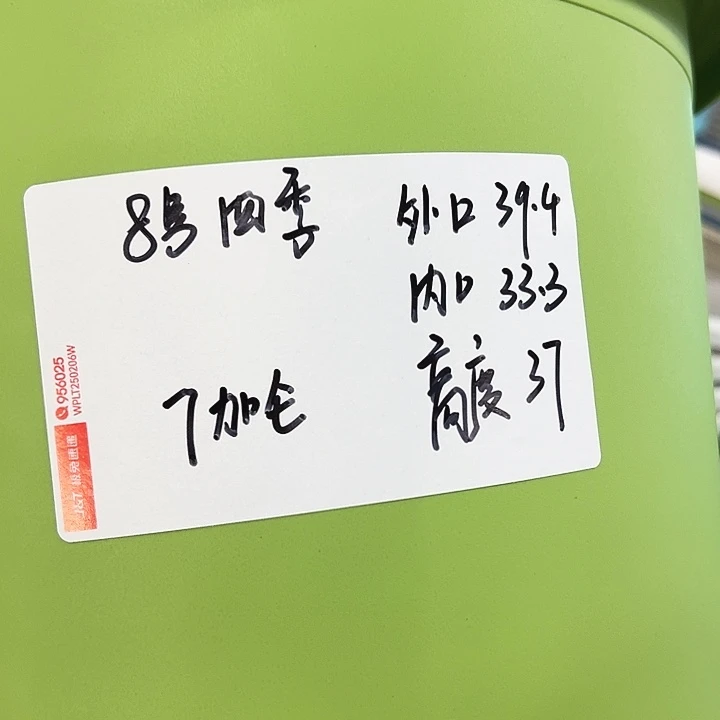 8号 四季
外口 39.4
内口 33.3
7加仑
高度 37
956025
WPLT250206W
J&T 极兔速递